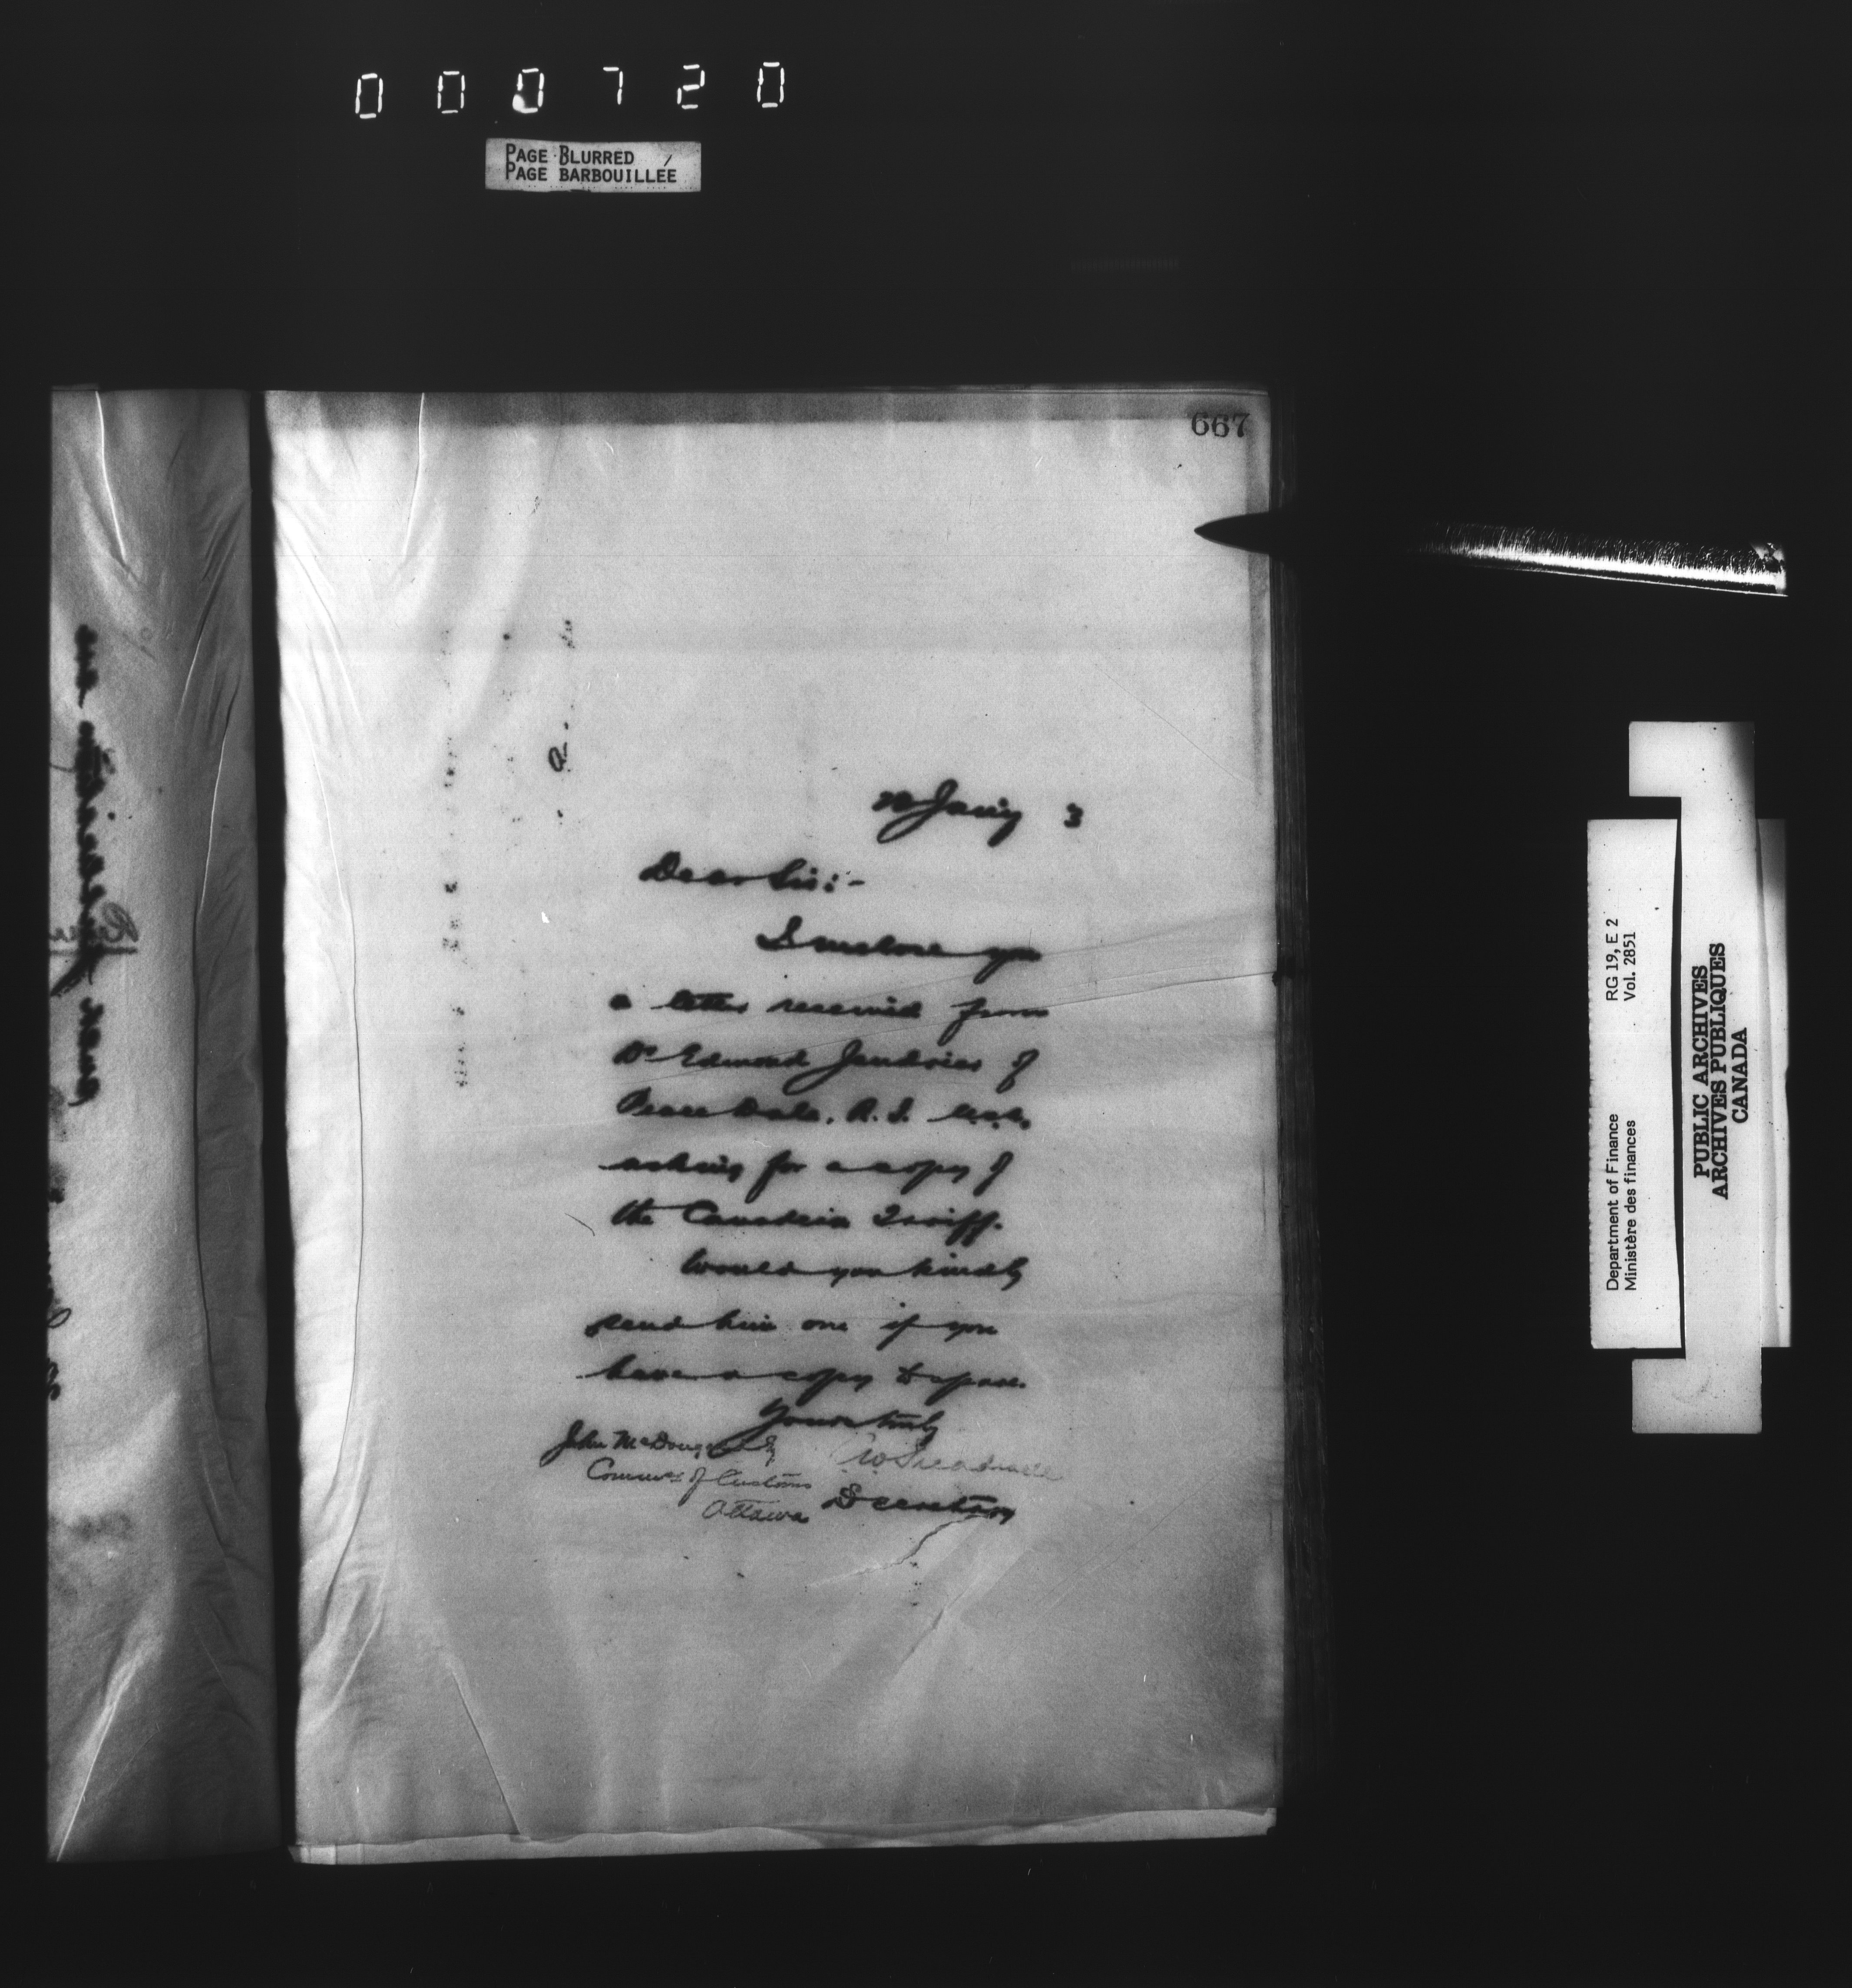 000720
PAGE BLURRED
PAGE BARBOUILLÉE
667
Jan'y 3
Dear Sir:-
I enclose you
a letter received from
Dr Edmond of
Peace Dale, R.I. U.S.A.
asking for a copy of
the Canadian Tariff.
Would you kindly
send him one if you
have a copy to spare.
Yours truly
John McDougald Esq
Commr of Customs
Ottawa
Secretary
Department of Finance RG 19, E 2
Ministère des finances Vol. 2851
PUBLIC ARCHIVES
ARCHIVES PUBLIQUES
CANADA